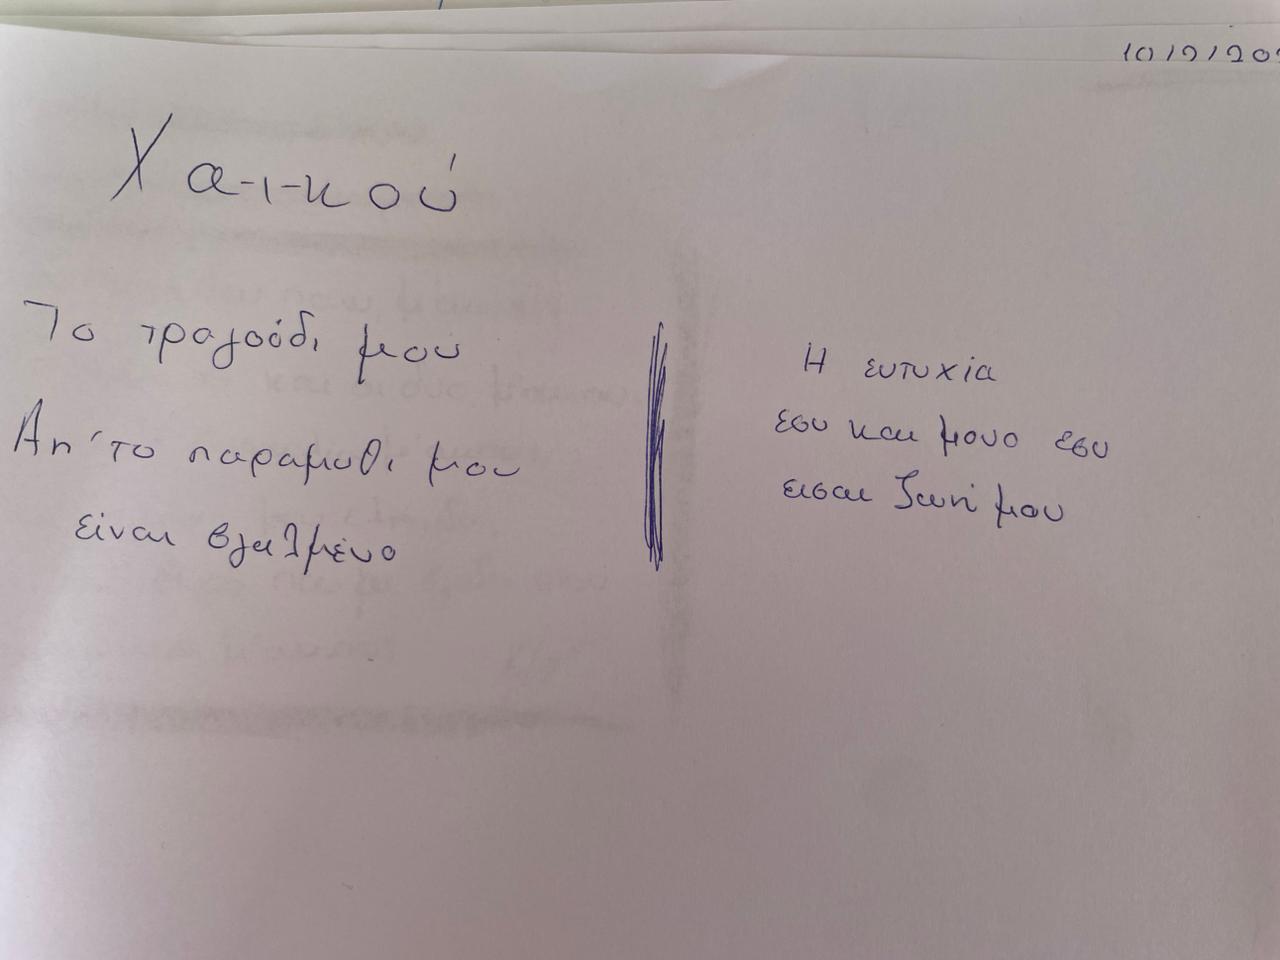 10/2/20
Χα-ι-κού
Το τραγούδι μου
Απ'το παραμυθι μου
είναι βγαλμένο
Η ευτυχία
εσυ και μονο εσυ
εισαι ζωή μου